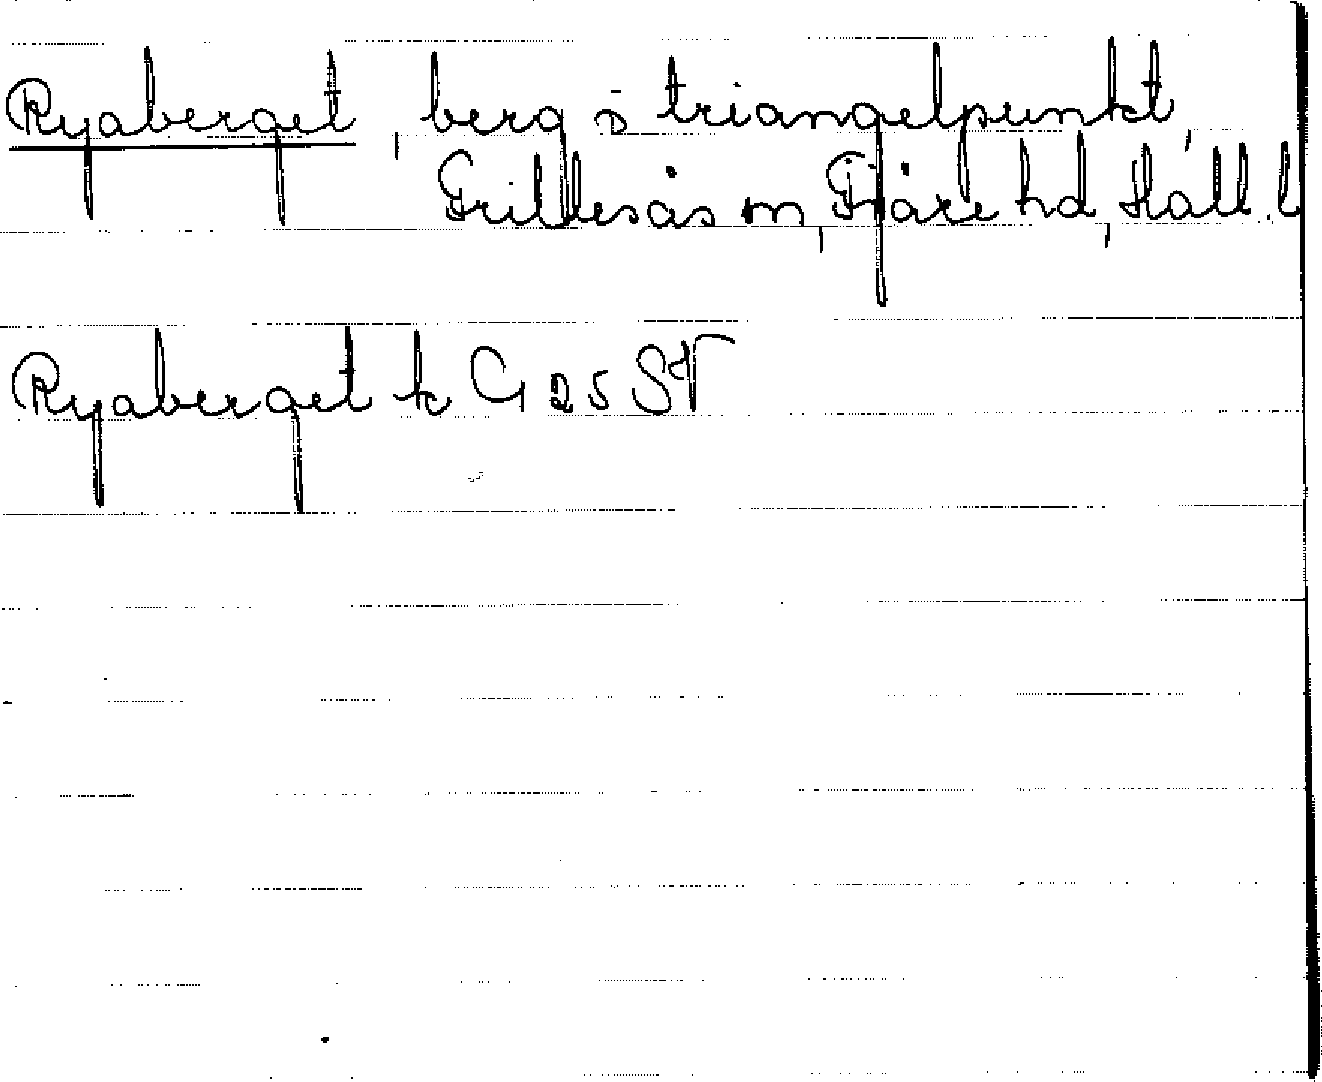 Ryaberget, berg o triangelpunkt,
Frillesås sn, Fjäre hd, Hall. l
Ryaberget k G 25 SV